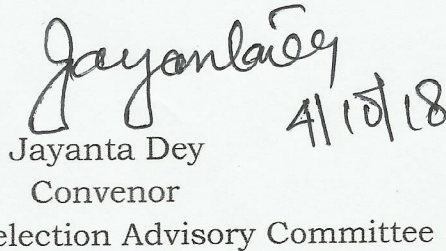 Jayanta Dey
4/10/18
Jayanta Dey
Convenor
election Advisory Committee